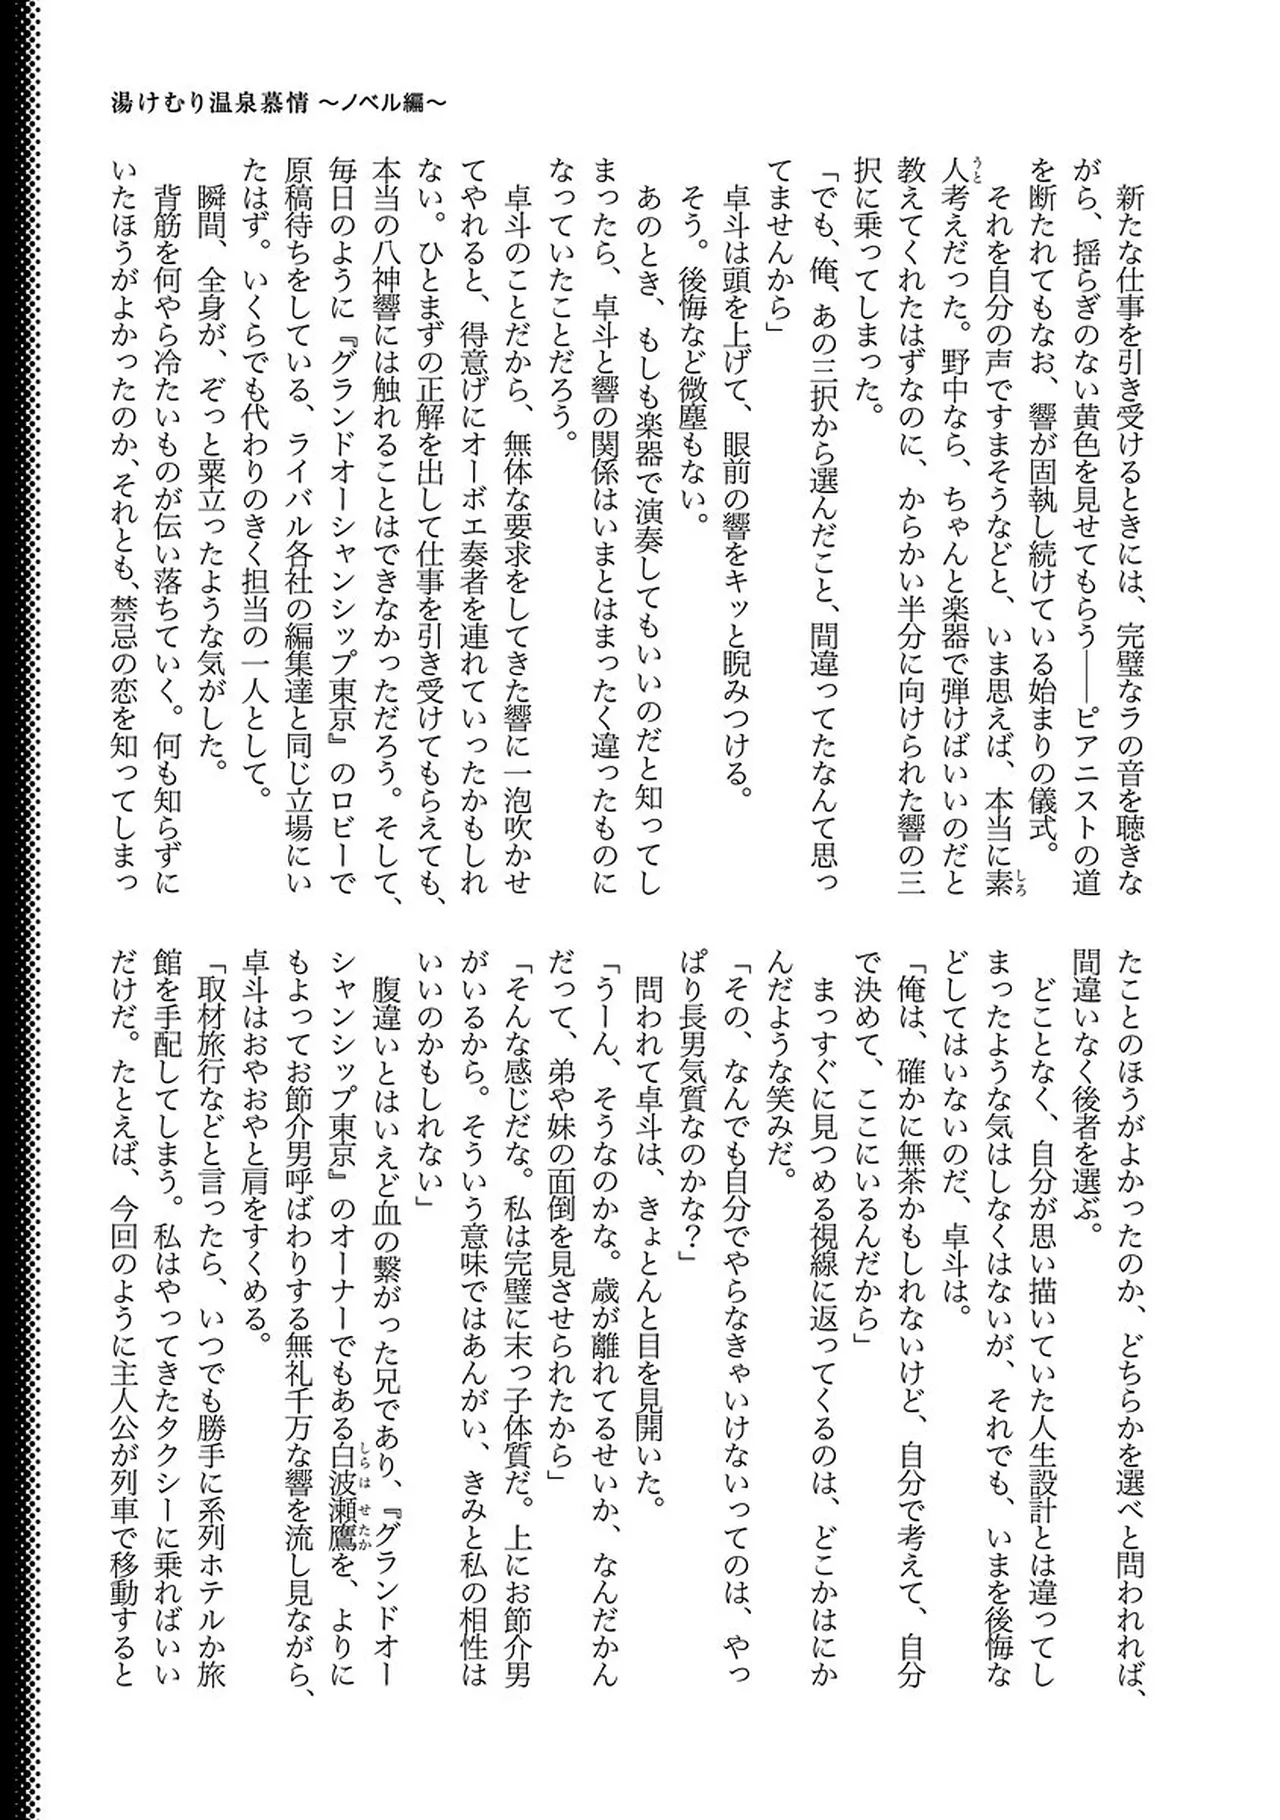 湯けむり温泉慕情 ～ノベル編～
　新たな仕事を引き受けるときには、完璧なラの音を聴きな
がら、揺らぎのない黄色を見せてもらう――ピアニストの道
を断たれてもなお、響が固執し続けている始まりの儀式。
　それを自分の声ですまそうなどと、いま思えば、本当に素
人考えだった。野中なら、ちゃんと楽器で弾けばいいのだと
教えてくれたはずなのに、からかい半分に向けられた響の三
択に乗ってしまった。
「でも、俺、あの三択から選んだこと、間違ってたなんて思っ
てませんから」
　卓斗は頭を上げて、眼前の響をキッと睨みつける。
　そう。後悔など微塵もない。
　あのとき、もしも楽器で演奏してもいいのだと知ってし
まったら、卓斗と響の関係はいまとはまったく違ったものに
なっていたことだろう。
　卓斗のことだから、無体な要求をしてきた響に一泡吹かせ
てやれると、得意げにオーボエ奏者を連れていったかもしれ
ない。ひとまずの正解を出して仕事を引き受けてもらえても、
本当の八神響には触れることはできなかっただろう。そして、
毎日のように『グランドオーシャンシップ東京』のロビーで
原稿待ちをしている、ライバル各社の編集達と同じ立場にい
たはず。いくらでも代わりのきく担当の一人として。
　瞬間、全身が、ぞっと粟立ったような気がした。
　背筋を何やら冷たいものが伝い落ちていく。何も知らずに
いたほうがよかったのか、それとも、禁忌の恋を知ってしまっ
たことのほうがよかったのか、どちらかを選べと問われれば、
間違いなく後者を選ぶ。
　どことなく、自分が思い描いていた人生設計とは違ってし
まったような気はしなくはないが、それでも、いまを後悔な
どしてはいないのだ、卓斗は。
「俺は、確かに無茶かもしれないけど、自分で考えて、自分
で決めて、ここにいるんだから」
　まっすぐに見つめる視線に返ってくるのは、どこかはにか
んだような笑みだ。
「その、なんでも自分でやらなきゃいけないってのは、やっ
ぱり長男気質なのかな？」
　問われて卓斗は、きょとんと目を見開いた。
「うーん、そうなのかな。歳が離れてるせいか、なんだかん
だって、弟や妹の面倒を見させられたから」
「そんな感じだな。私は完璧に末っ子体質だ。上にお節介男
がいるから。そういう意味ではあんがい、きみと私の相性は
いいのかもしれない」
　腹違いとはいえど血の繋がった兄であり、『グランドオー
シャンシップ東京』のオーナーでもある白波瀬鷹を、よりに
もよってお節介男呼ばわりする無礼千万な響を流し見ながら、
卓斗はおやおやと肩をすくめる。
「取材旅行などと言ったら、いつでも勝手に系列ホテルか旅
館を手配してしまう。私はやってきたタクシーに乗ればいい
だけだ。たとえば、今回のように主人公が列車で移動すると